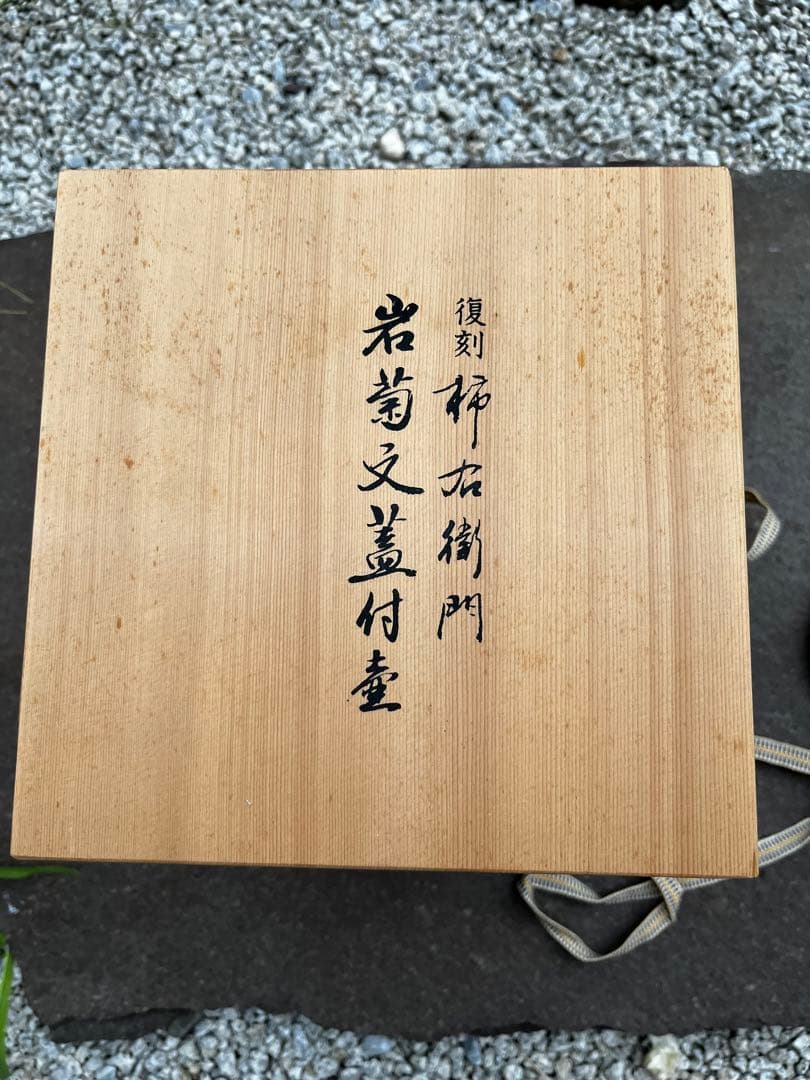 復刻 柿右衛門
岩菊文蓋付壷